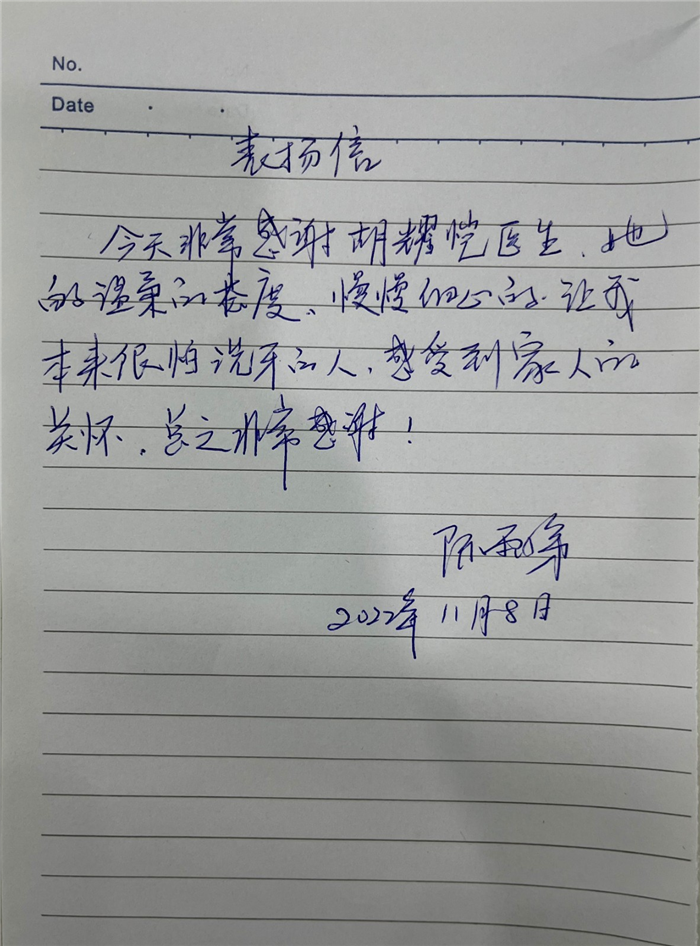 No.
Date
表扬信
今天非常感谢胡耀恺医生、她
的温柔的态度、慢慢细心的、让我
本来很怕洗牙的人、感受到家人的
关怀、总之非常感谢！
陈
2022年11月8日